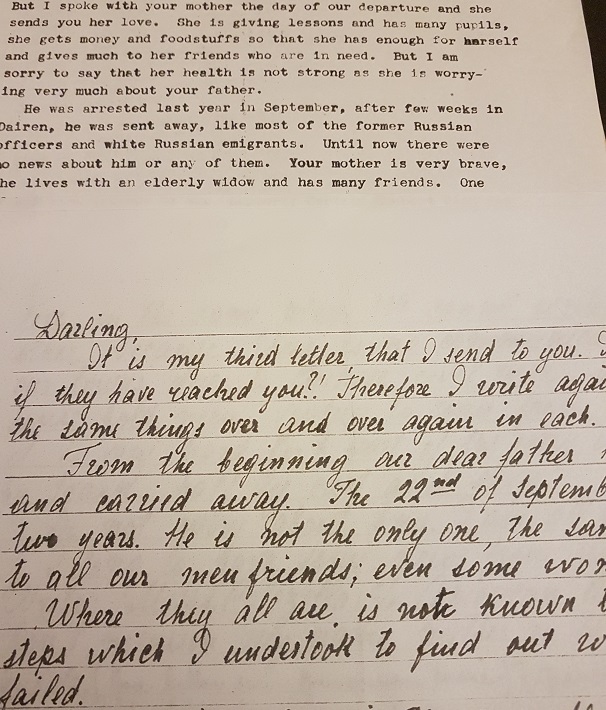 But I spoke with your mother the day of our departure and she
sends you her love. She is giving lessons and has many pupils,
she gets money and foodstuffs so that she has enough for harself
and gives much to her friends who are in need. But I am
sorry to say that her health is not strong as she is worry-
ing very much about your father.
He was arrested last year in September, after few weeks in
Dairen, he was sent away, like most of the former Russian
officers and white Russian emigrants. Until now there were
no news about him or any of them. Your mother is very brave,
he lives with an elderly widow and has many friends. One
Darling,
It is my third letter, that I send to you.
if they have reached you?! Therefore I write agai
the same things over and over again in each.
From the beginning our dear father
and carried away. The 22nd of Septemb
two years. He is not the only one, the sam
to all our men friends; even some wom
Where they all are, is not known t
steps which I undertook to find out w
failed.